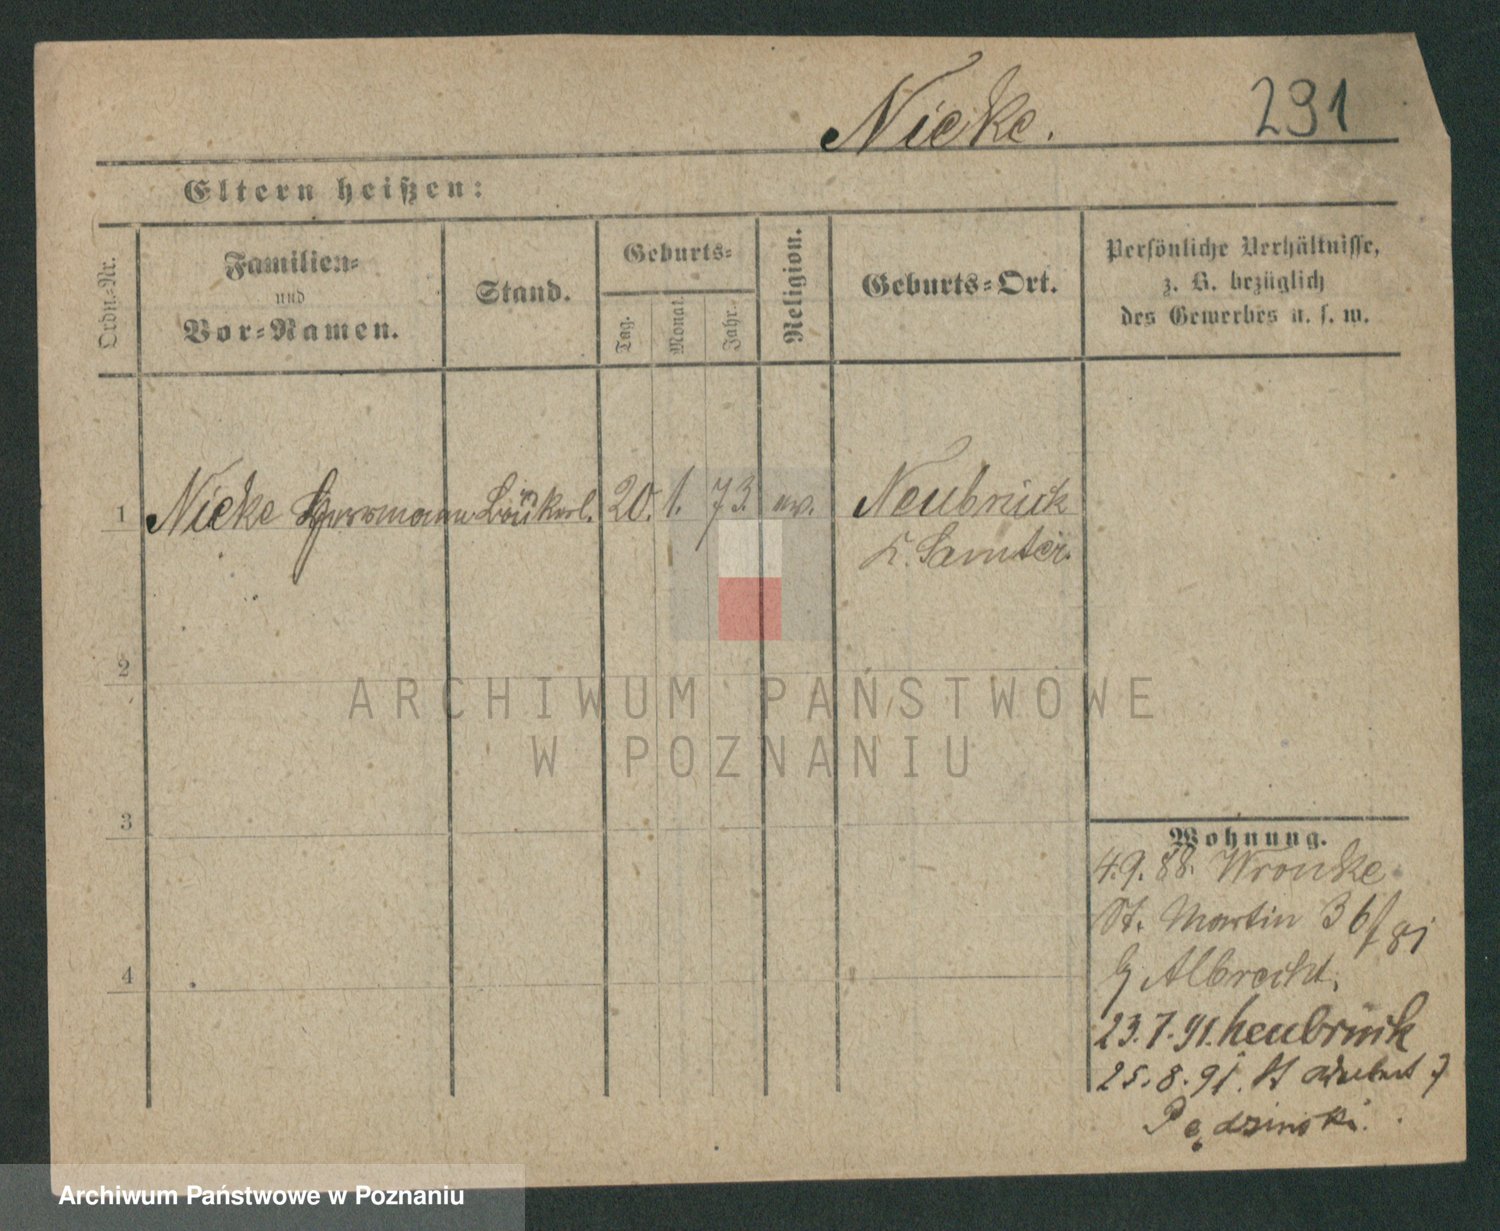 Nieke.
291
Eltern heißen:
Ordn.-Nr.
Familien-
und
Vor-Namen.
Stand.
Geburts-
Tag.
Monat.
Jahr.
Religion.
Geburts-Ort.
Persönliche Verhältnisse,
z. B. bezüglich
des Gewerbes u. s. w.
1 Nieke Herrmann 20. 1. 73. ev. Neubrück
K. Samter.
2
3
4
Wohnung.
4.9.88. Wronke
St. Martin 36/81
Albrecht.
23.7.91. Neubrück
25.8.91. St Adalbert 7
Pędzinski.
ARCHIWUM PAŃSTWOWE
W POZNANIU
Archiwum Państwowe w Poznaniu